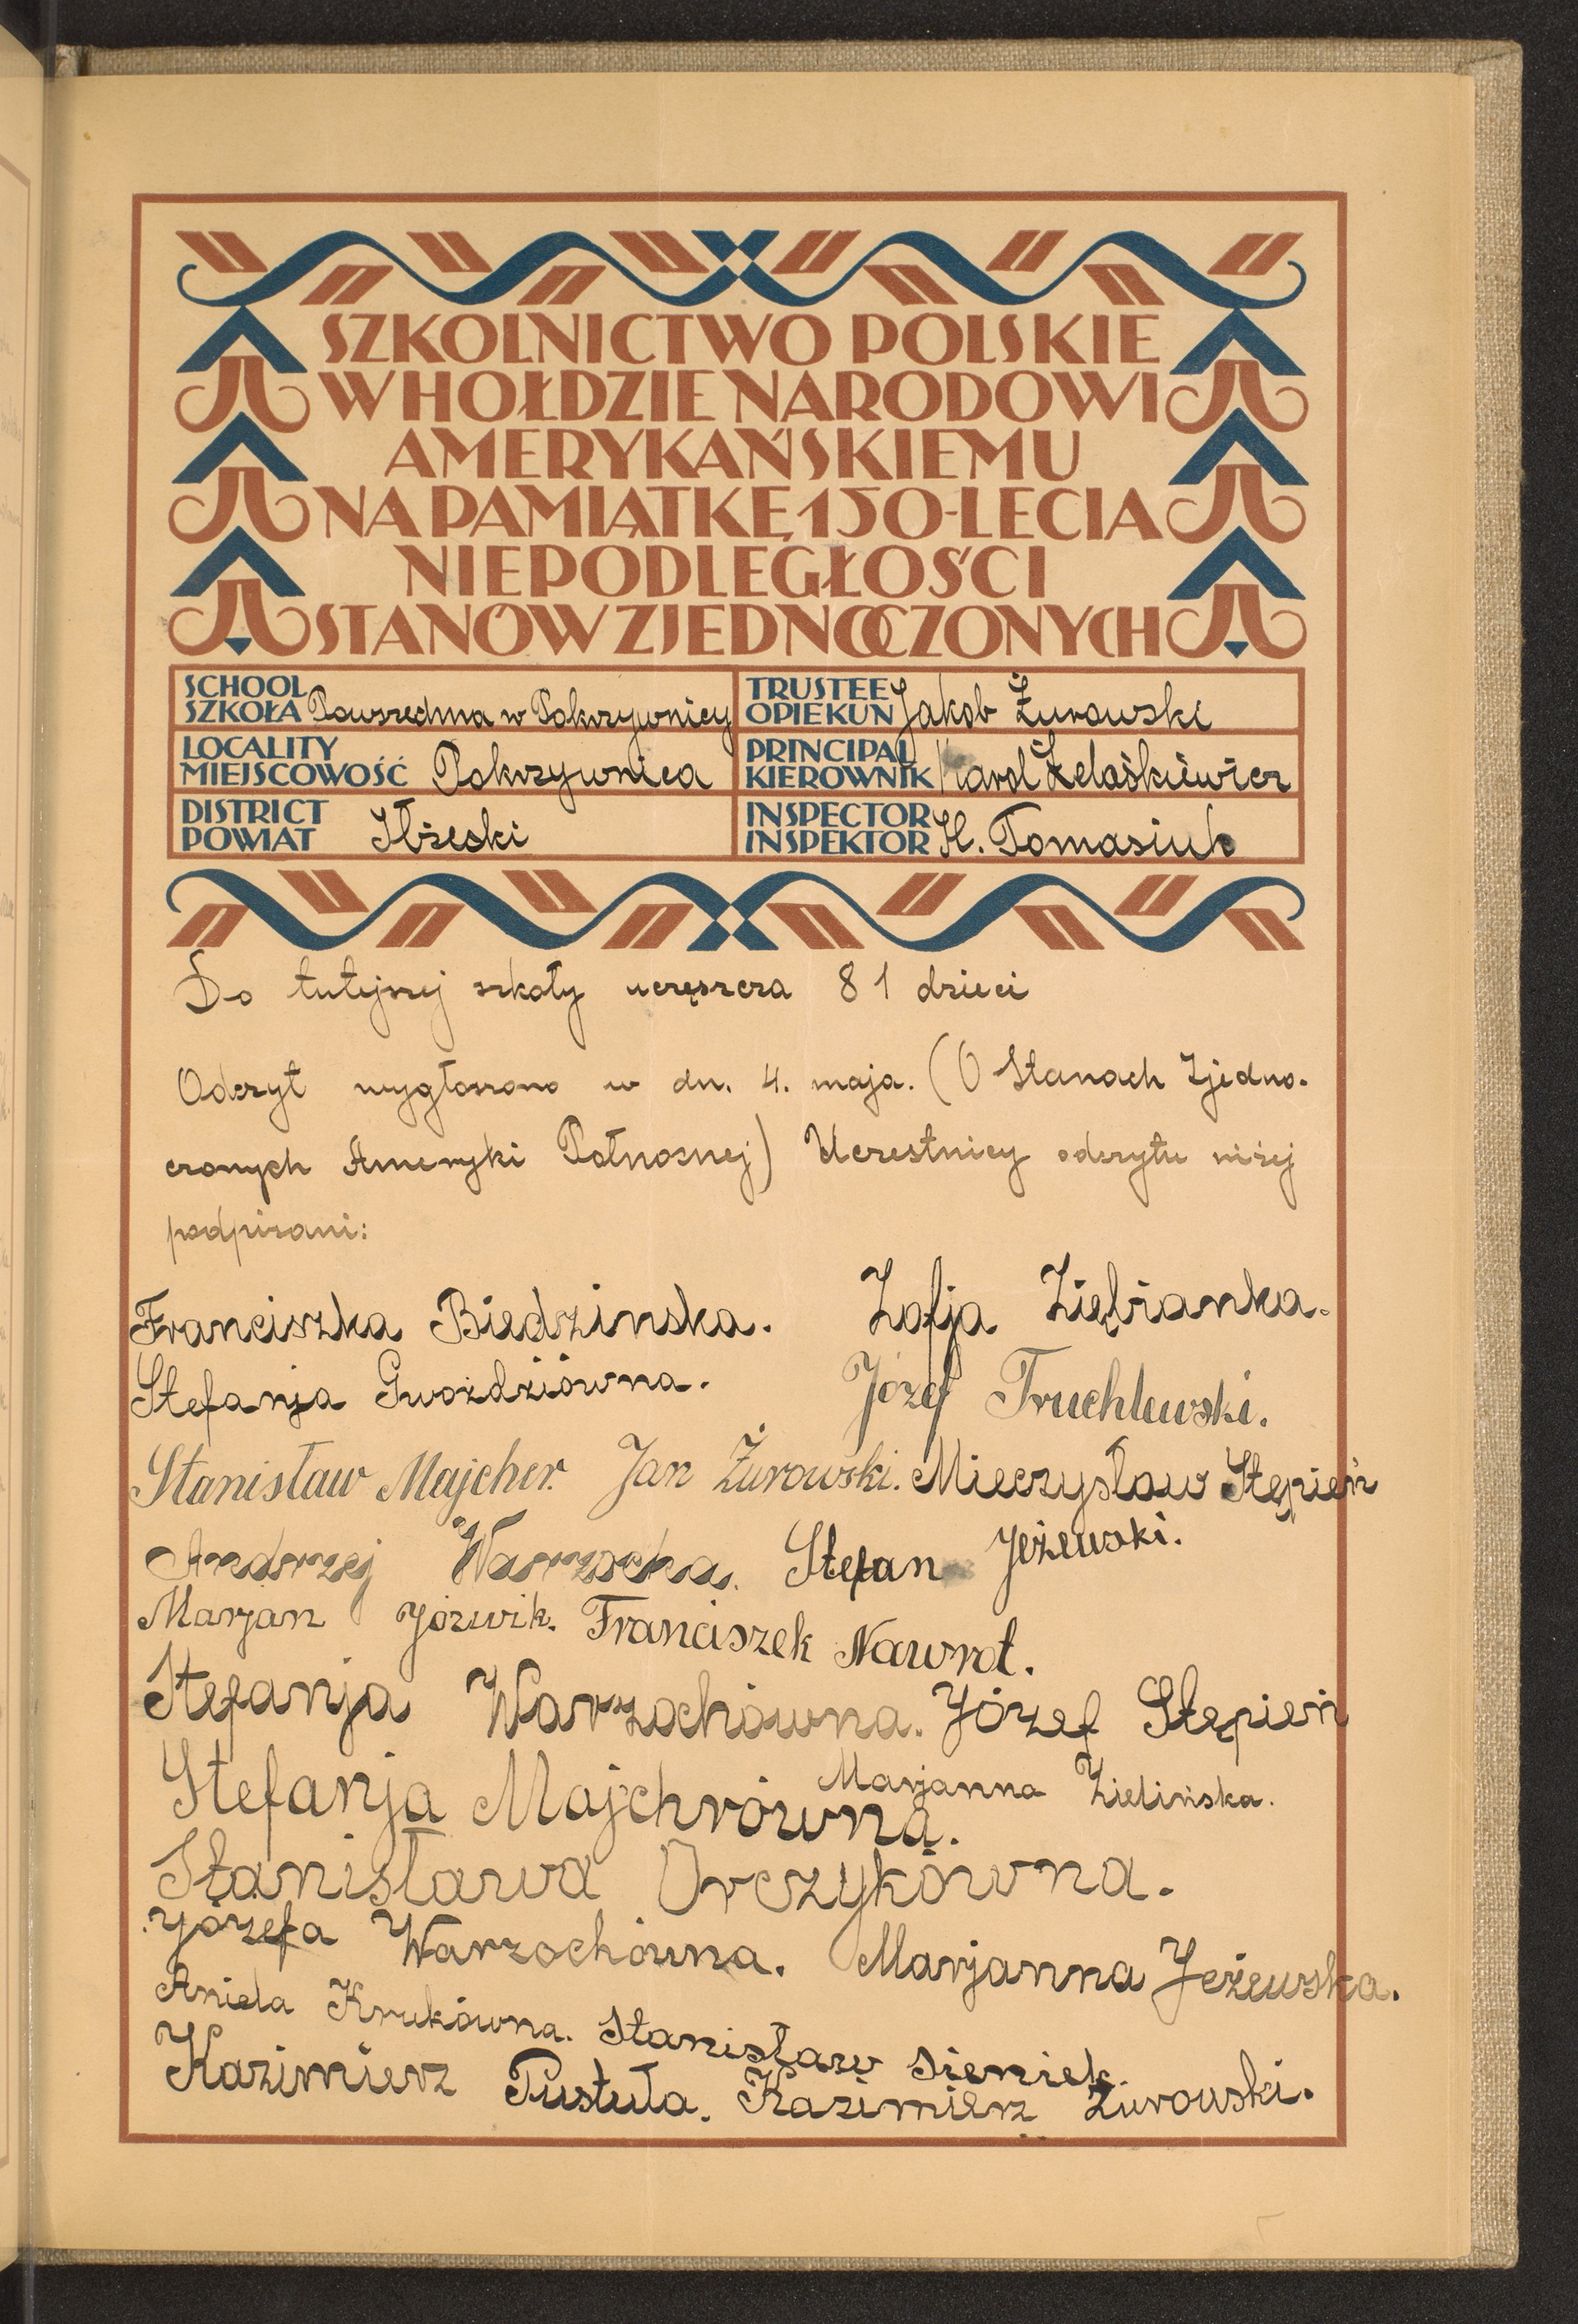 SZKOLNICTWO POLSKIE
W HOŁDZIE NARODOWI
AMERYKAŃSKIEMU
NA PAMIĄTKĘ 150-LECIA
NIEPODLEGŁOŚCI
STANÓW ZJEDNOCZONYCH
SCHOOL
SZKOŁA Powszechna w Pokrzywnicy
TRUSTEE
OPIEKUN Jakób Żurowski
LOCALITY
MIEJSCOWOŚĆ Pokrzywnica
PRINCIPAL
KIEROWNIK Karol Żelaśkiewicz
DISTRICT
POWIAT Iłżecki
INSPECTOR
INSPEKTOR H. Tomasiuk
Do tutejszej szkoły uczęszcza 81 dzieci
Odczyt wygłoszono w dn. 4. maja. (O Stanach Zjedno-
czonych Ameryki Północnej) Uczestnicy odczytu niżej
podpisani:
Franciszka Biedzinska. Zofja Ziębianka.
Stefanja Gwoździówna. Józef Truchlewski.
Stanisław Majcher. Jan Żurowski. Mieczysław Stępień
Andrzej Warzocha. Stefan Jeżewski.
Marjan Józwik. Franciszek Nawrot.
Stefanja Warzochówna. Józef Stępień
Stefanja Majchrówna. Marjanna Zielińska.
Stanisława Orczykówna.
Józefa Warzochówna. Marjanna Jeżewska.
Aniela Krukówna. Stanisław Sieniek.
Kazimierz Pustuła. Kazimierz Żurowski.